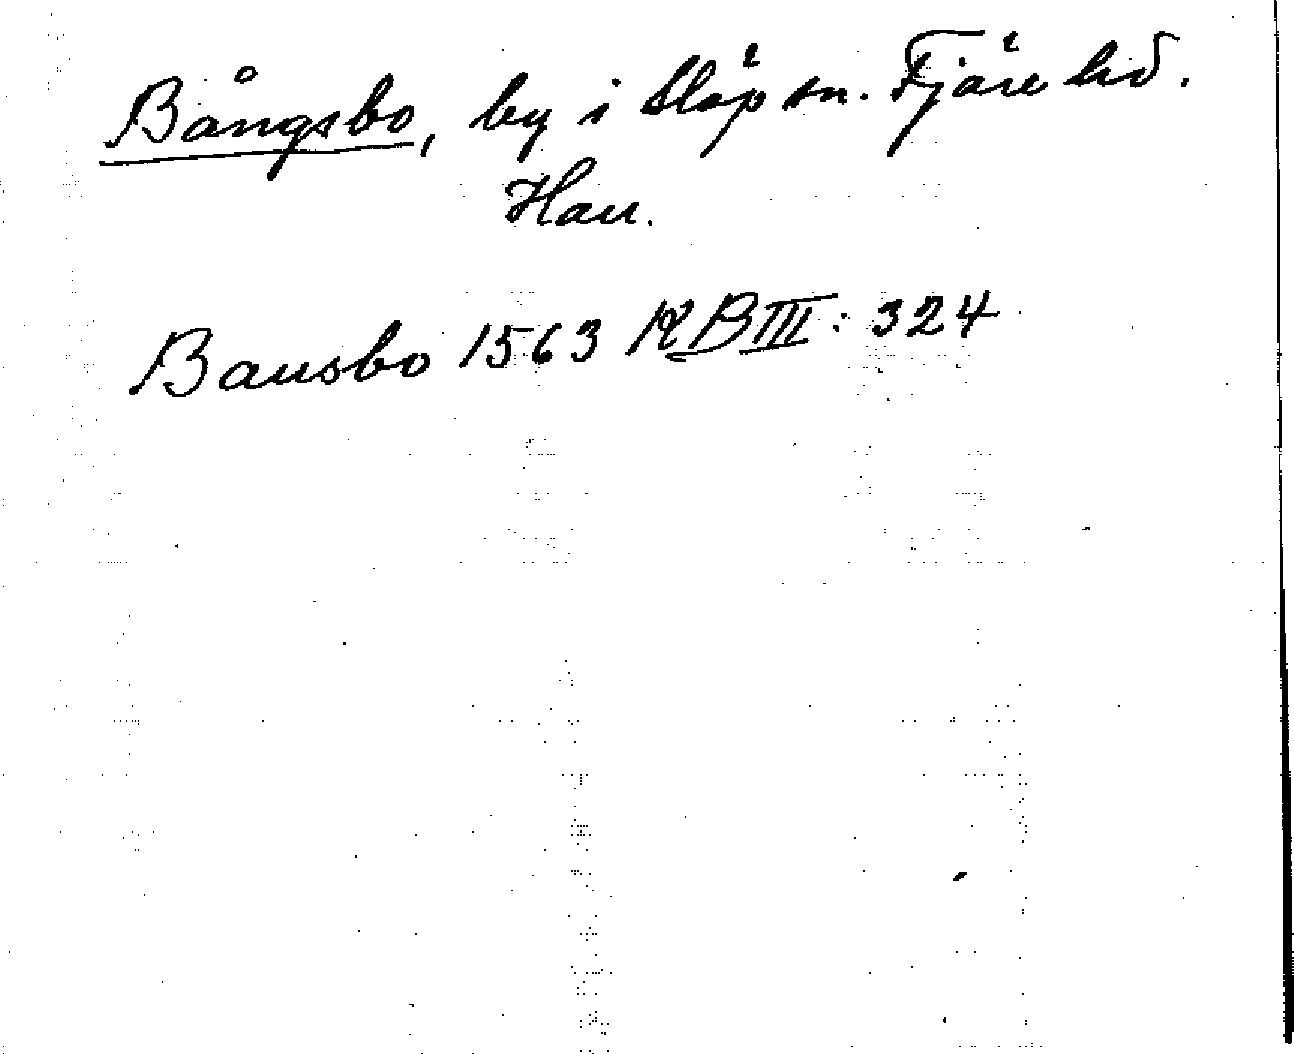 Bångsbo, by i Släp sn. Fjäre hd.
Hall.
Bausbo 1563 KB III: 324